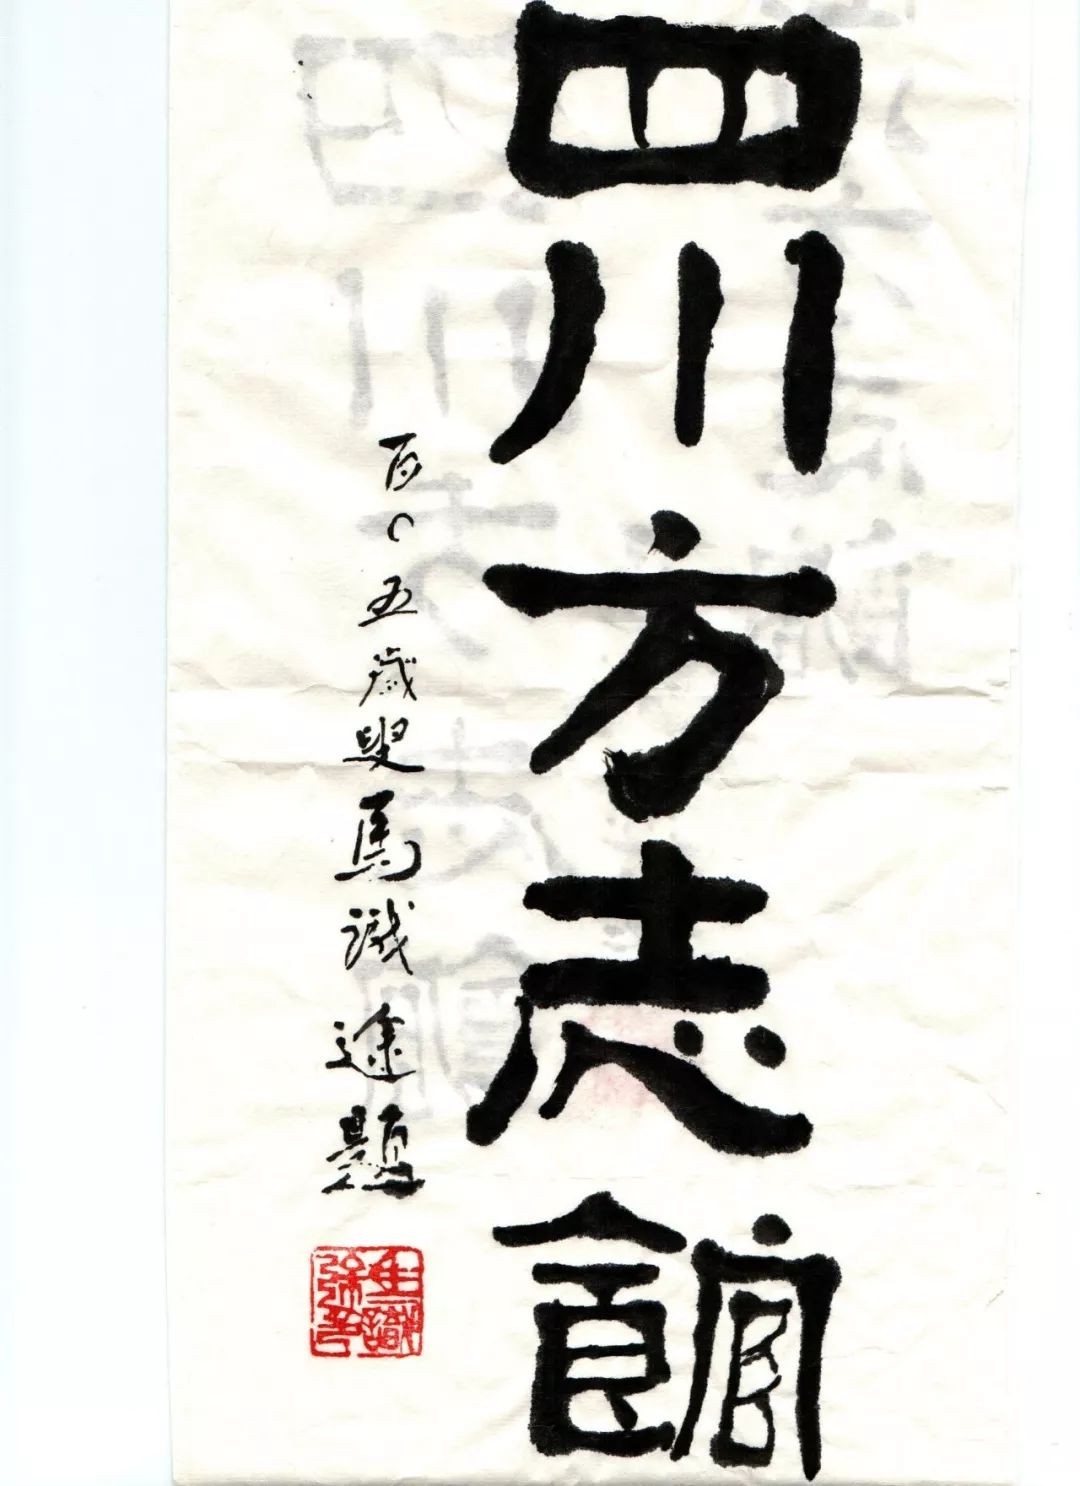 四川方志館
百〇五歲叟馬識途題